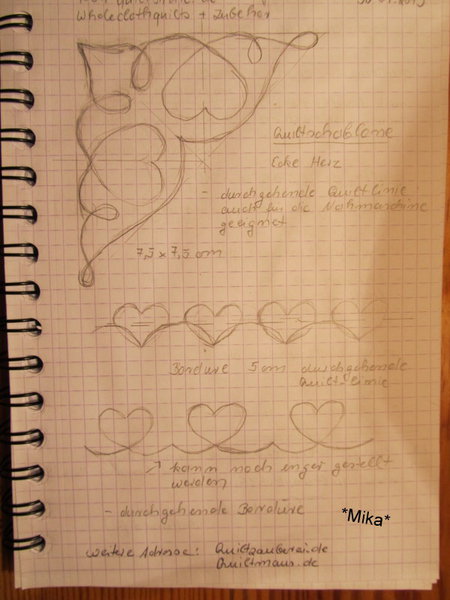 Wholeclothquilts + Zubehör
Quiltschablone
Ecke Herz
- durchgehende Quiltlinie
auch für die Nähmaschine
geeignet
7,5 x 7,5 cm
Bordüre 5 cm durchgehende
Quiltlinie
kann noch enger gestellt
werden
- durchgehende Bordüre
*Mika*
weitere Adresse: Quiltzauberei.de
Quiltmaus.de